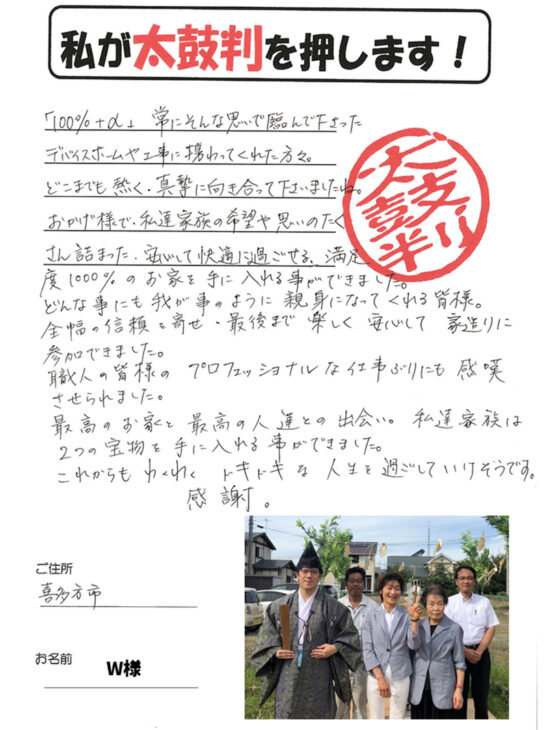 私が太鼓判を押します！
「100%+α」 常にそんな思いで臨んで下さった
デバイスホームや工事に携わってくれた方々。
どこまでも熱く、真摯に向き合って下さいましたね。
おかげ様で、私達家族の希望や思いのたく
さん詰まった、安心して快適に過ごせる、満足
度1000%のお家を手に入れる事ができました。
どんな事にも我が事のように親身になってくれる皆様。
全幅の信頼を寄せ、最後まで楽しく安心して家造りに
参加できました。
職人の皆様のプロフェッショナルな仕事ぶりにも感嘆
させられました。
最高のお家と最高の人達との出会い。私達家族は
2つの宝物を手に入れる事ができました。
これからもわくわくドキドキな人生を過ごしていけそうです。
感謝。
太鼓判
ご住所
喜多方市
お名前
W様